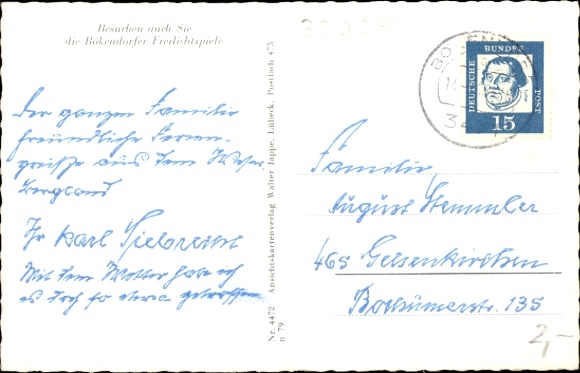 Besuchen auch Sie
die Bökendorfer Freilichtspiele
Der ganzen Familie
freundliche Ferien-
grüße aus dem Weser-
bergland
Ihr Karl
Mit dem Wetter habe ich
es doch so etwa getroffen
Nr. 4472 Ansichtskartenverlag Walter Jappe, Lübeck, Postfach 475
n 79
DEUTSCHE
BUNDES
POST
15
Familie
August Stemmler
465 Gelsenkirchen
Bochumerstr. 135
2,-